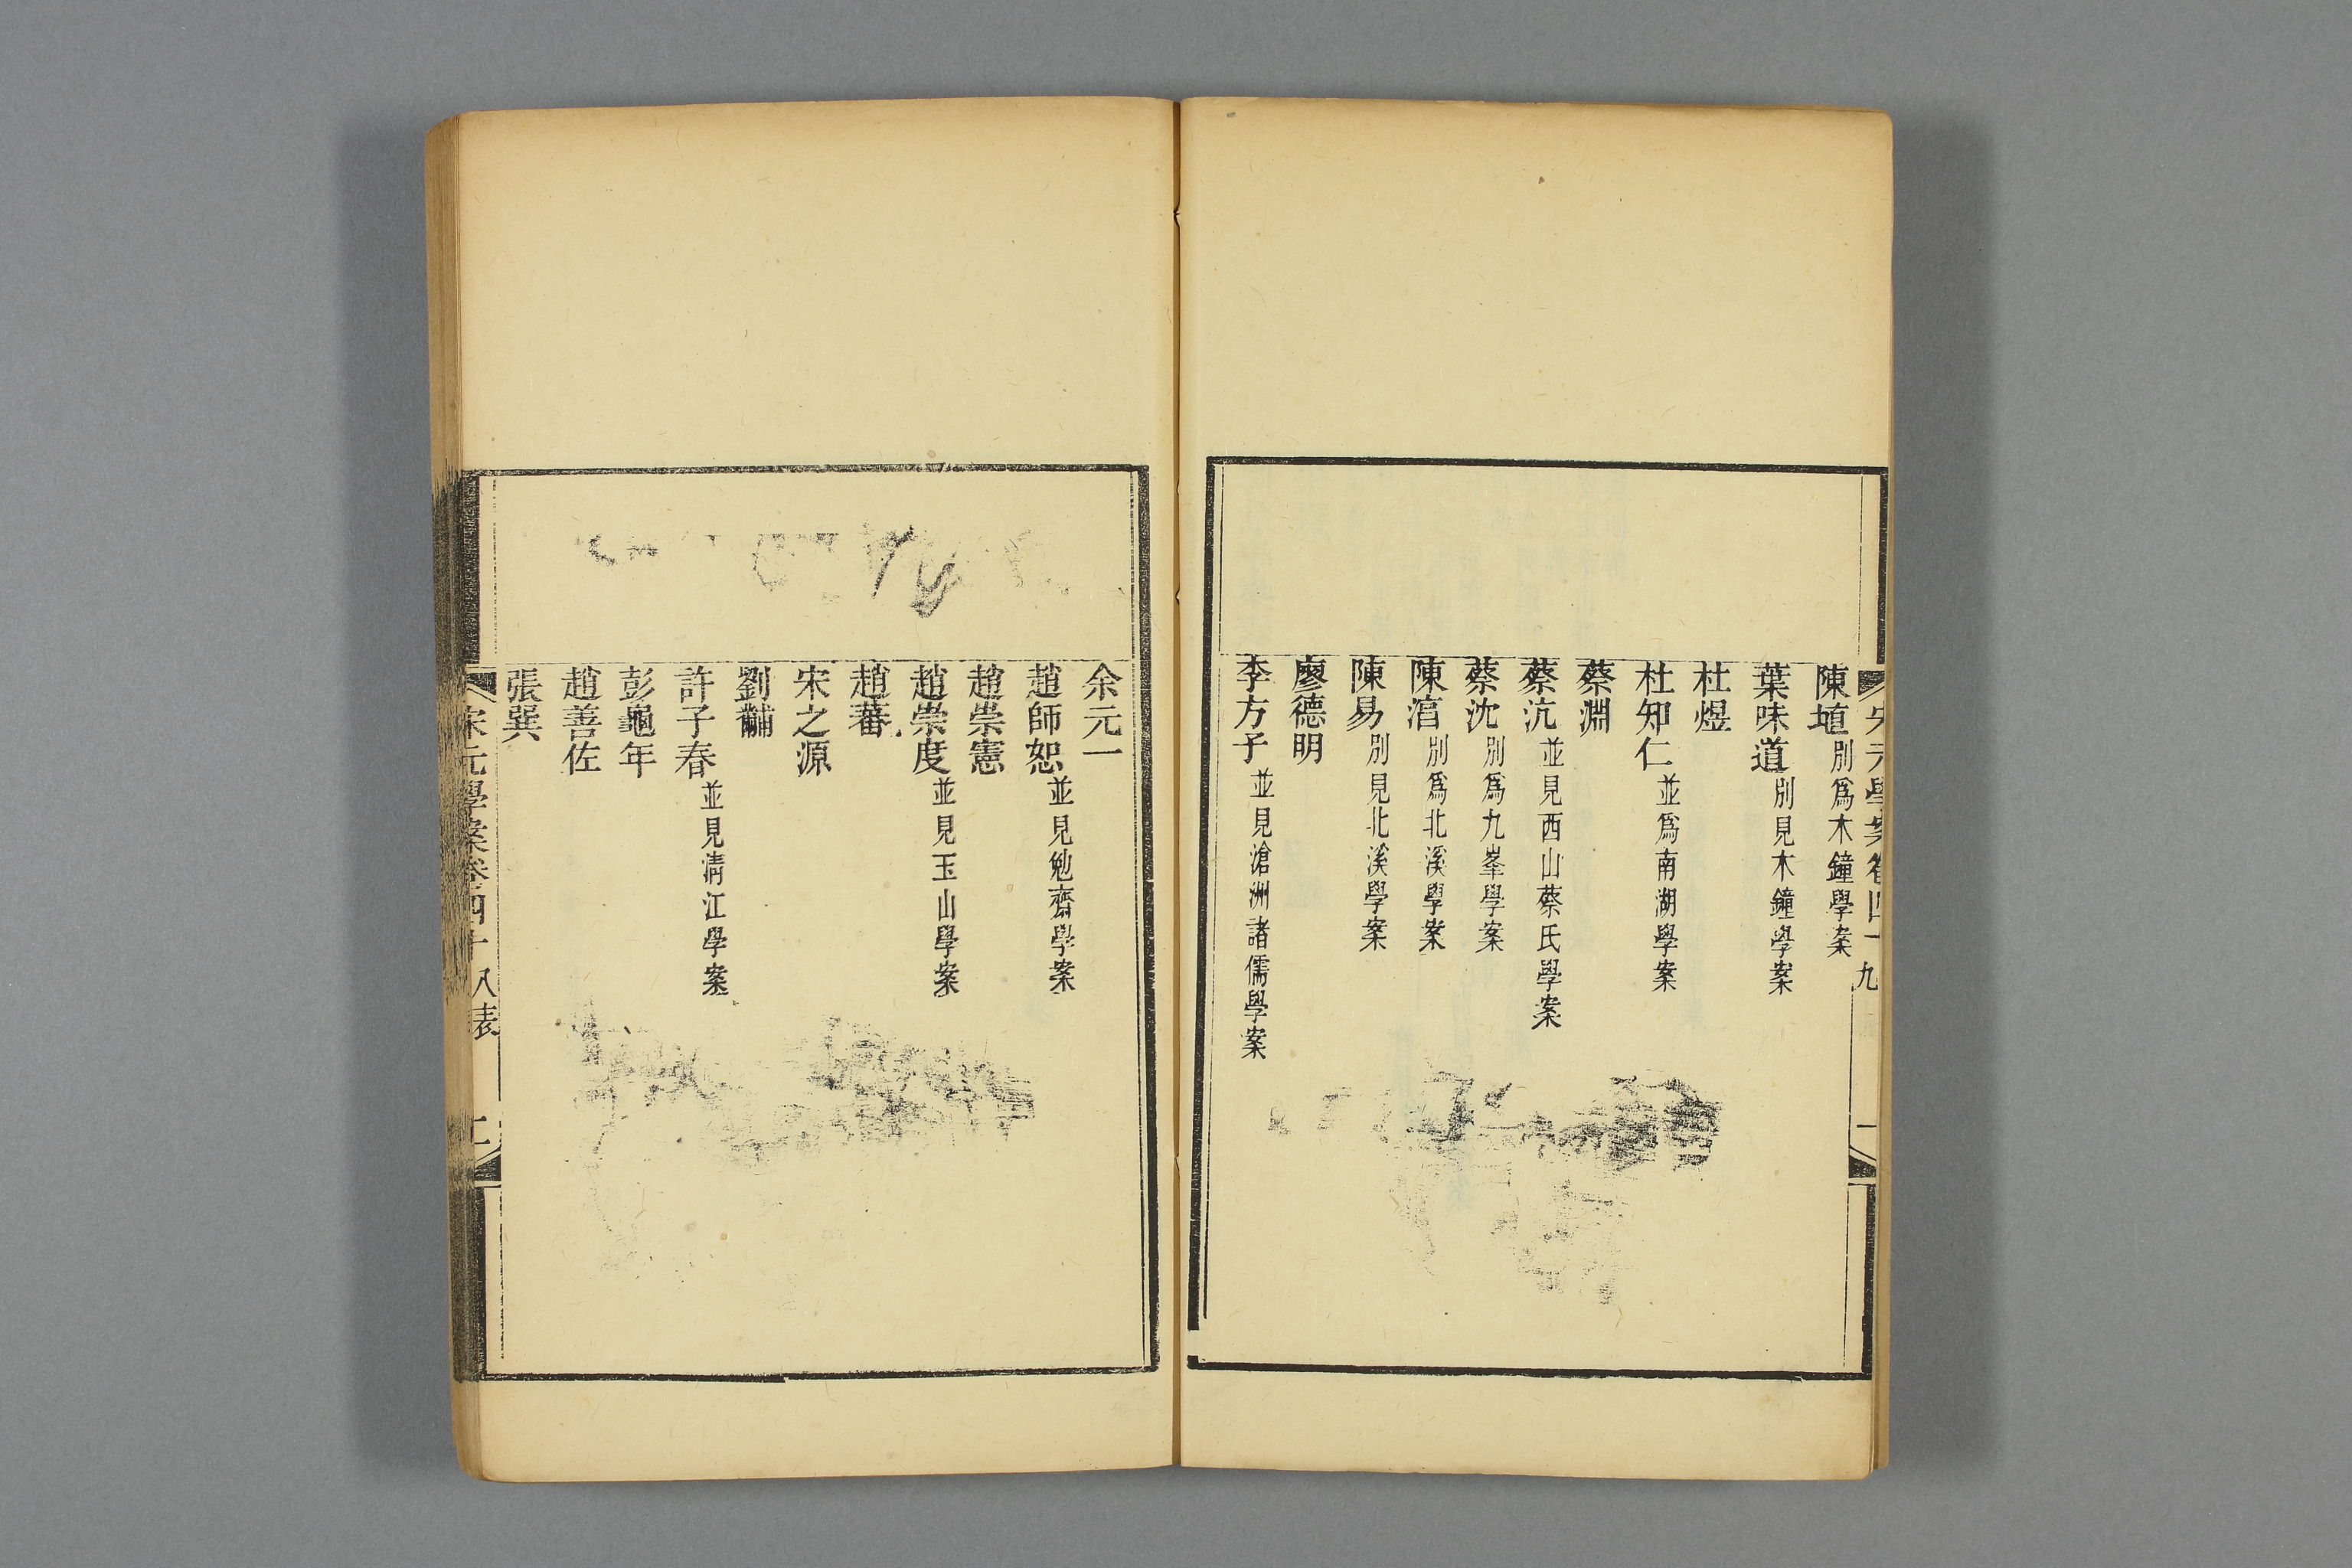 陳埴別爲木鐘學案
葉味道別見木鐘學案
杜煜
杜知仁並爲南湖學案
蔡淵
蔡沆並見西山蔡氏學案
蔡沈別爲九峯學案
陳淳別爲北溪學案
陳易別見北溪學案
廖德明
李方子並見滄洲諸儒學案
余元一
趙師恕並見勉齋學案
趙崇憲
趙崇度並見玉山學案
趙蕃
宋之源
劉黼
許子春並見清江學案
彭龜年
趙善佐
張巽
宋元學案卷四十八表